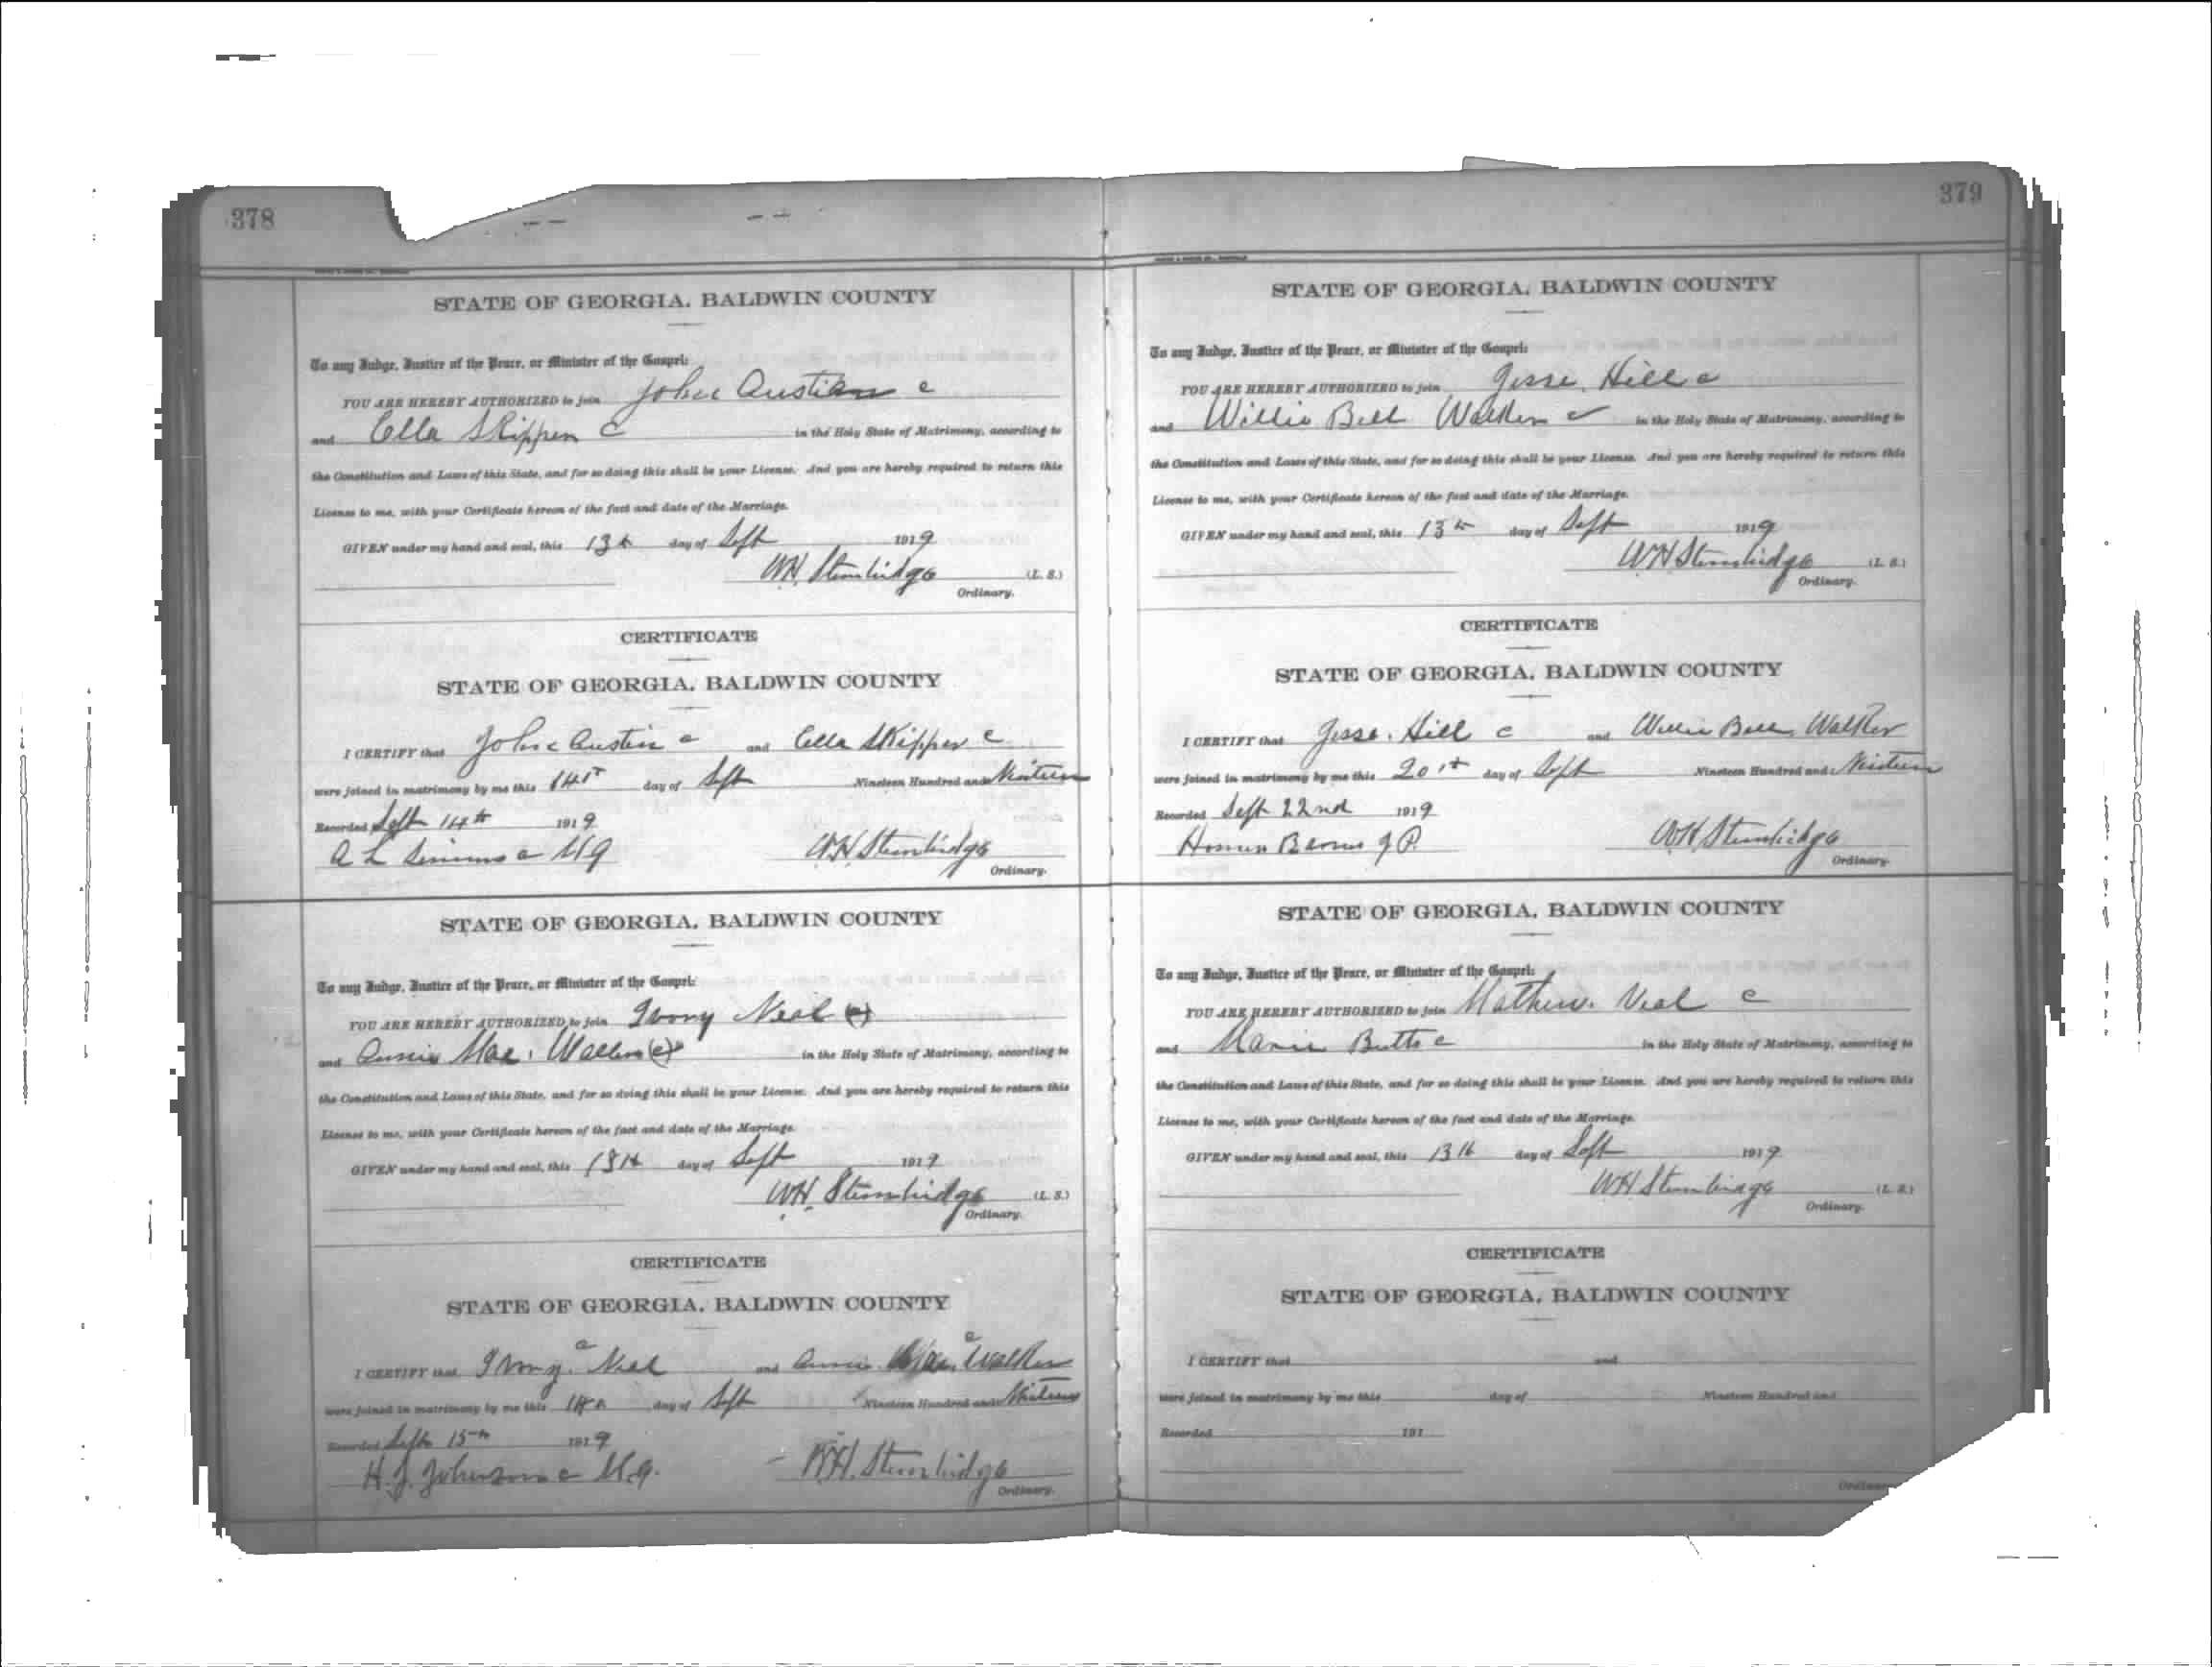 378
STATE OF GEORGIA, BALDWIN COUNTY
To any Judge, Justice of the Peace, or Minister of the Gospel:
YOU ARE HEREBY AUTHORIZED to join John Austin c
and Ella Skipper C in the Holy State of Matrimony, according to
the Constitution and Laws of this State, and for so doing this shall be your License. And you are hereby required to return this
License to me, with your Certificate hereon of the fact and date of the Marriage.
GIVEN under my hand and seal, this 13th day of Sept 1919
WH Stembridge (L. S.)
Ordinary.
CERTIFICATE
STATE OF GEORGIA, BALDWIN COUNTY
I CERTIFY that John Austin c and Ella Skipper c
were joined in matrimony by me this 14th day of Sept Nineteen Hundred and Nineteen
Recorded Sept 14th 1919
A L Simms c M G WH Stembridge
Ordinary.
STATE OF GEORGIA, BALDWIN COUNTY
To any Judge, Justice of the Peace, or Minister of the Gospel:
YOU ARE HEREBY AUTHORIZED to join Ivory Neal (c)
and Annie Mae Walker (c) in the Holy State of Matrimony, according to
the Constitution and Laws of this State, and for so doing this shall be your License. And you are hereby required to return this
License to me, with your Certificate hereon of the fact and date of the Marriage.
GIVEN under my hand and seal, this 13th day of Sept 1919
WH Stembridge (L. S.)
Ordinary.
CERTIFICATE
STATE OF GEORGIA, BALDWIN COUNTY
I CERTIFY that Ivory c Neal and Annie Mae c Walker
were joined in matrimony by me this 14th day of Sept Nineteen Hundred and Nineteen
Recorded Sept 15th 1919
H. J. Johnson c M.G. W.H. Stembridge
Ordinary.
379
STATE OF GEORGIA, BALDWIN COUNTY
To any Judge, Justice of the Peace, or Minister of the Gospel:
YOU ARE HEREBY AUTHORIZED to join Jesse Hill c
and Willie Bell Walker c in the Holy State of Matrimony, according to
the Constitution and Laws of this State, and for so doing this shall be your License. And you are hereby required to return this
License to me, with your Certificate hereon of the fact and date of the Marriage.
GIVEN under my hand and seal, this 13th day of Sept 1919
WH Stembridge (L. S.)
Ordinary.
CERTIFICATE
STATE OF GEORGIA, BALDWIN COUNTY
I CERTIFY that Jesse Hill c and Willie Bell Walker
were joined in matrimony by me this 20th day of Sept Nineteen Hundred and Nineteen
Recorded Sept 22nd 1919
Homer J P. WH Stembridge
Ordinary.
STATE OF GEORGIA, BALDWIN COUNTY
To any Judge, Justice of the Peace, or Minister of the Gospel:
YOU ARE HEREBY AUTHORIZED to join Mathew Neal c
and Marie Butts c in the Holy State of Matrimony, according to
the Constitution and Laws of this State, and for so doing this shall be your License. And you are hereby required to return this
License to me, with your Certificate hereon of the fact and date of the Marriage.
GIVEN under my hand and seal, this 13th day of Sept 1919
WH Stembridge (L. S.)
Ordinary.
CERTIFICATE
STATE OF GEORGIA, BALDWIN COUNTY
I CERTIFY that and
were joined in matrimony by me this day of Nineteen Hundred and
Recorded 191
Ordinary